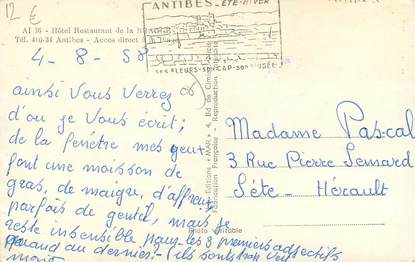 12 €
ANTIBES - ÉTÉ-HIVER
SES FLEURS-SON CAP-SON MUSÉE
AI 36 - Hôtel Restaurant de la
Tél. 410-31 Antibes - Acces direct
4-8-58
ainsi Vous Verrez
d'ou je Vous écrit;
de la fenêtre mes yeux
font une moisson de
gras, de maigre, d'affreux
parfois de gentil, mais je
reste insensible pour les 3 premiers adjectifs
quand au dernier? - ils sont trop
mais
Editions « MAR » - 4, Bd de Cimiez
Fabrication Française - Reproduction
Photo véritable
Madame Pascal
3 Rue Pierre Semard
Séte - Hérault